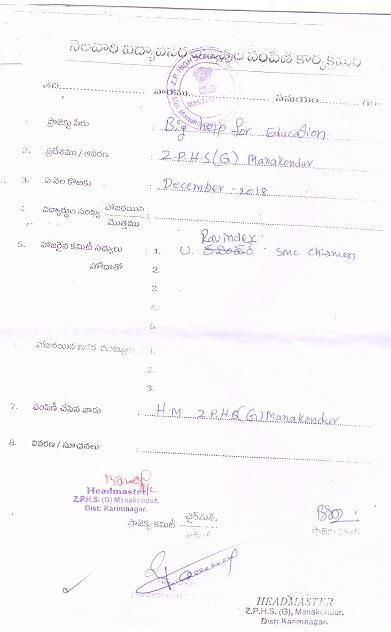 నెలవారి నిత్యావసర వస్తువుల పంపిణి కార్యక్రమం
తేది............ వారము............ సమయం............
ప్రాజెక్టు పేరు : Big help for Education
2. ప్రదేశము / ఆవరణ : Z.P.H.S(G) Manakondur
3. ఏ నెల కొరకు : December - 2018
4. విద్యార్థుల సంఖ్య హాజరయిన :
మొత్తము
Ravinder
5. హాజరైన కమిటీ సభ్యులు : 1. U. రవీందర్ SMC Chirmen
హోదాతో 2.
3.
4.
5.
హాజరయిన ఇతర ముఖ్యులు : 1.
2.
3.
7. పంపిణీ చేసిన వారు : H.M Z.P.H.S(G) Manakondur
8. వివరణ / సూచనలు :
Headmaster
Z.P.H.S. (G), Manakondur,
Dist: Karimnagar.
ప్రాజెక్టు కమిటీ ఛైర్మెన్
HEADMASTER
Z.P.H.S. (G), Manakondur,
Dist: Karimnagar.